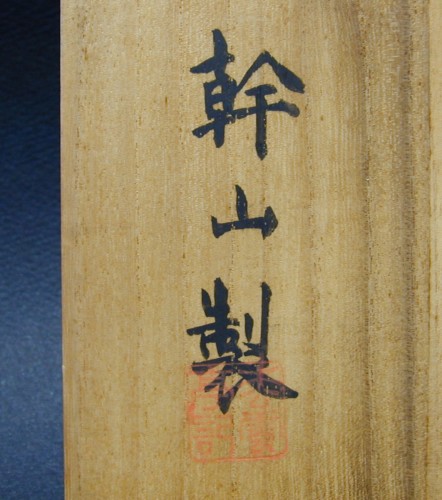 幹山製